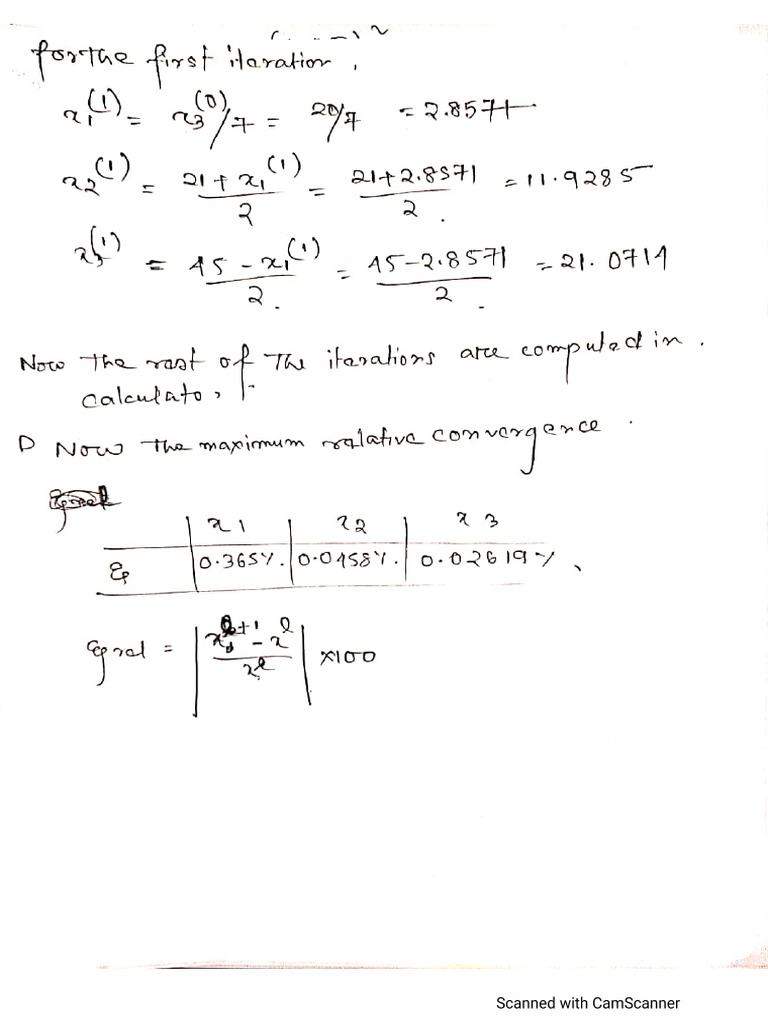 for the first iteration,
x₁^(1) = x₃^(0)/7 = 20/7 = 2.8571
x₂^(1) = (21 + x₁^(1))/2 = (21+2.8571)/2 = 11.9285
x₃^(1) = (45 - x₁^(1))/2 = (45-2.8571)/2 = 21.0714
Now the rest of the iterations are computed in.
calculato,
D Now the maximum relative convergence.
x1 x2 x3
0.365%. 0.0458%. 0.02619%
rel = | (x^(l+1) - x^l)/x^l | ×100
Scanned with CamScanner